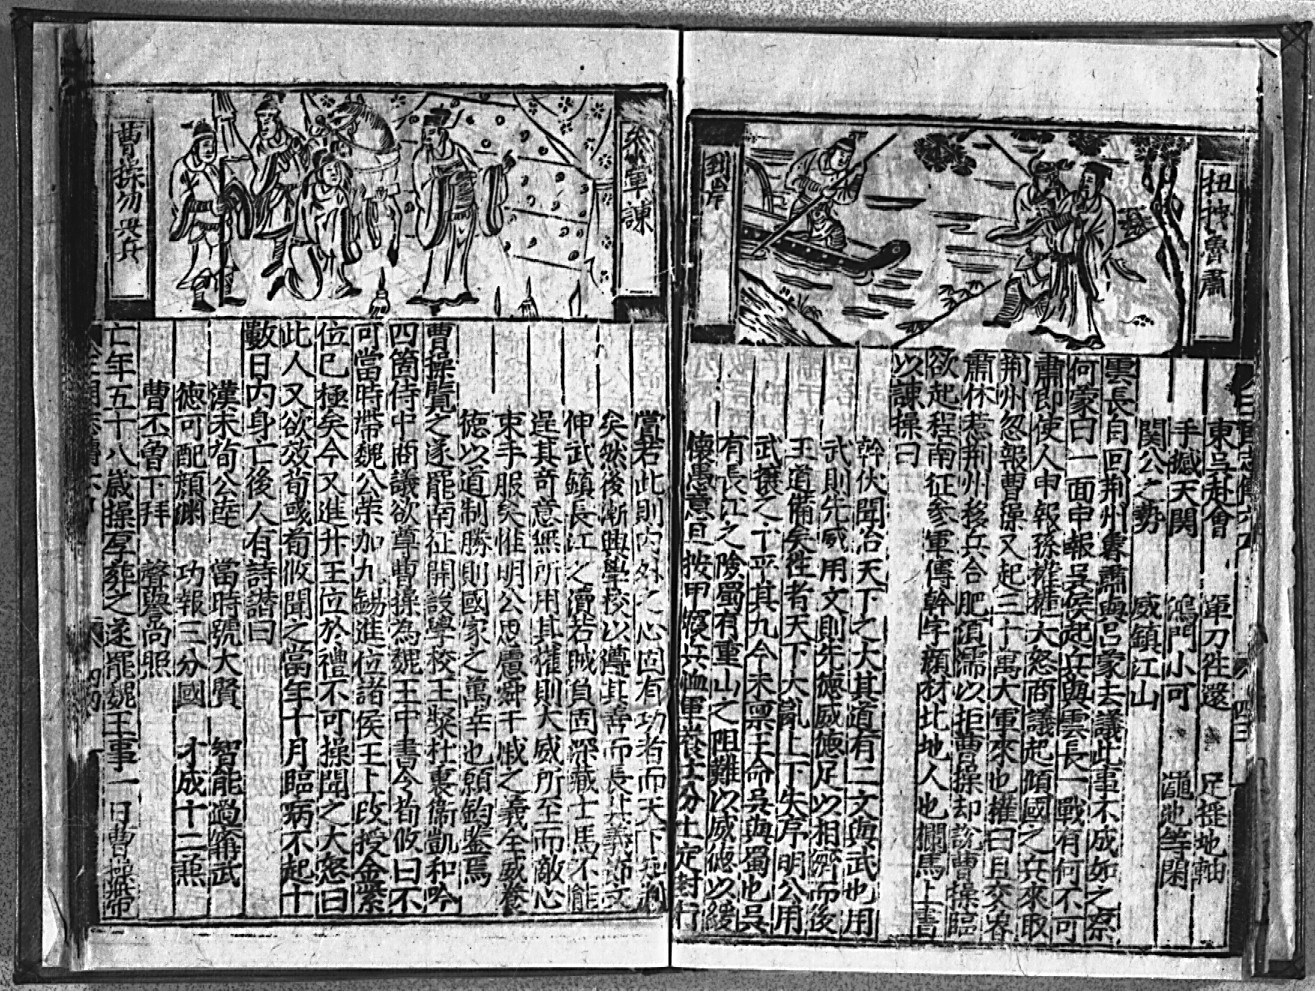 扭抻魯肅
到岸
東吳赴會 單刀徃還 足搖地軸
手撼天関 鴻門小可 澠池等閑
関公之勢 威鎮江山
雲長自回荆州魯肅與吕蒙去議此事不成如之奈
何蒙曰一面申報吳侯起兵與雲長一戰有何不可
肅即使人申報孫權權大怒商議起傾國之兵來取
荆州忽報曹操又起三十萬大軍來也權曰且交魯
肅休惹荆州移兵合肥濡須以拒曹操却說曹操臨
欲起程南征參軍傅幹字顏材北地人也攔馬上書
以諫操曰
幹伏聞治天下之大其道有二文與武也用
武則先威用文則先德威德足以相濟而後
王道備矣徃者天下大亂上下失序明公用
武攘之十平其九今未禀王命吳與蜀也吳
有長江之險蜀有重山之阻難以威德以綏
懷愚意且按甲寢兵恤軍養士分土定封行
參軍諫
曹操勿兴兵
賞若此則內外之心固有功者而天下知制
矣然後漸興學校以導其善而長其義節文
伸武鎮長江之瀆若賊負固深藏士馬不能
逞其奇意無所用其權則大威所至而敵心
束手服矣惟明公思慮舜干戚之義全威養
德以道制勝則國家之萬幸也願鈞鑒焉
曹操覽之遂罷南征開設學校王粲杜襲衞凱和吟
四箇侍中商議欲尊曹操為魏王中書令荀攸曰不
可當時帶魏公榮加九錫進位諸侯王上改授金紫
位已極矣今又進升王位於禮不可操聞之大怒曰
此人又欲效荀彧荀攸聞之當年十月臨病不起十
數日內身亡後人有詩譛曰
漢末荀公達 當時號大賢 智能過甯武
德可配顏淵 功報三分國 才成十二焉
曹丕曽下拜 聲譽尚照
亡年五十八歲操厚葬之遂罷魏王事一日曹操帶